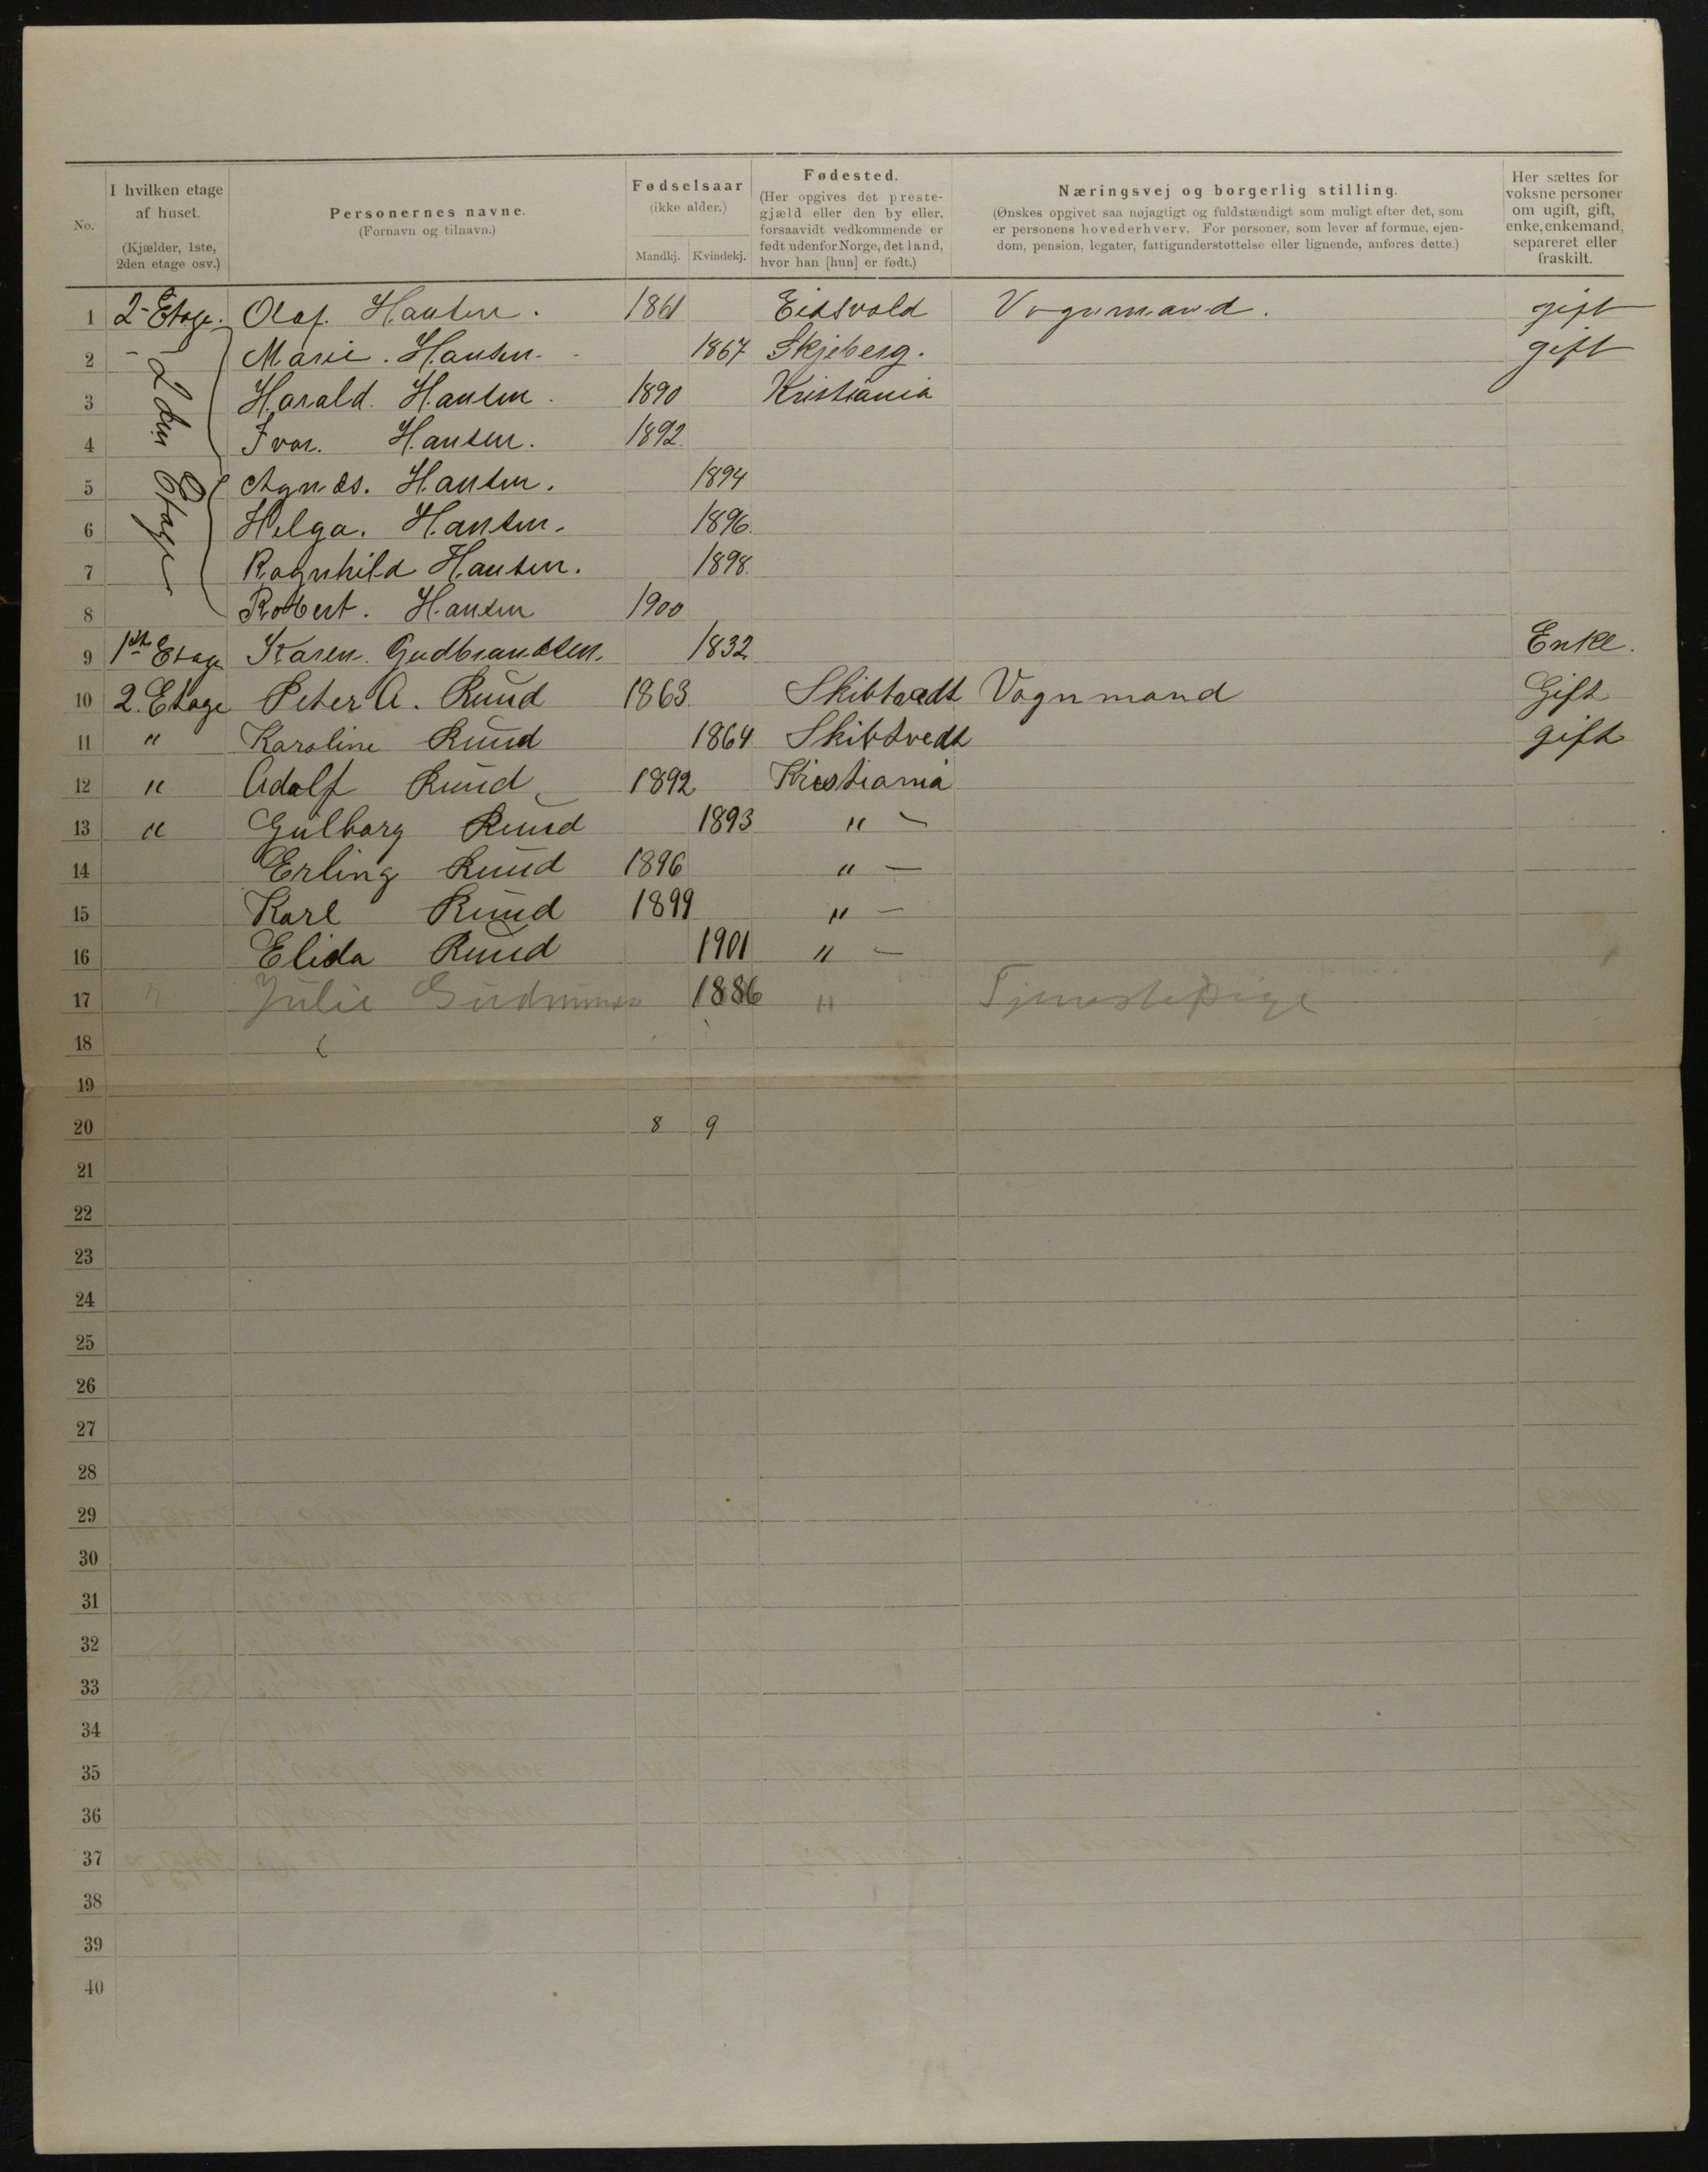 No.
I hvilken etage
af huset.
(Kjælder, 1ste,
2den etage osv.)
Personernes navne.
(Fornavn og tilnavn.)
Fødselsaar
(ikke alder.)
Mandkj. Kvindekj.
Fødested.
(Her opgives det preste-
gjæld eller den by eller,
forsaavidt vedkommende er
født udenfor Norge, det land,
hvor han [hun] er født.)
Næringsvej og borgerlig stilling.
(Ønskes opgivet saa nøjagtigt og fuldstændigt som muligt efter det, som
er personens hovederhverv. For personer, som lever af formue, ejen-
dom, pension, legater, fattigunderstøttelse eller lignende, anføres dette.)
Her sættes for
voksne personer
om ugift, gift,
enke, enkemand,
separeret eller
fraskilt.
1 2- Etage. Olaf. Hansen. 1861 Eidsvold Vognmand. gift
2 Marie. Hansen. 1867 Skjeberg. gift
- 2den Etage
3 Harald. Hansen. 1890 Kristiania
4 Ivar. Hansen. 1892
5 Agnæs. Hansen. 1894
6 Helga. Hansen. 1896.
7 Ragnhild Hansen. 1898.
8 Robert. Hansen 1900
9 1ste Etage Karen. Gudbrandsen. 1832 Enke.
10 2. Etage Peter A. Ruud 1863. Skibtvedt Vognmand Gift
11 " Karoline Ruud 1864 Skibtvedt gift
12 " Adolf Ruud 1892 Kristiania
13 " Gulborg Ruud 1893 " -
14 Erling Ruud 1896 " -
15 Karl Ruud 1899 " -
16 Elida Ruud 1901 " -
17 " Julie 1886 " Tjenestepige
18
19
20 8 9
21
22
23
24
25
26
27
28
29
30
31
32
33
34
35
36
37
38
39
40